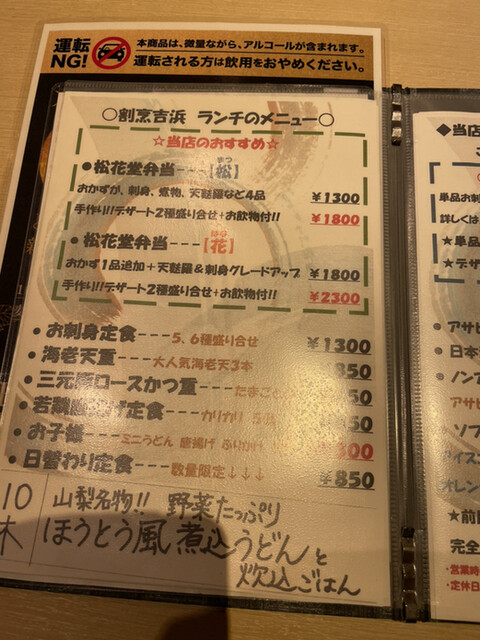 運転NG!
本商品は、微量ながら、アルコールが含まれます。
運転される方は飲用をおやめください。
○割烹吉浜 ランチのメニュー○
☆当店のおすすめ☆
●松花堂弁当---【松】
まつ
おかずが、刺身、煮物、天麩羅など4品 ¥1300
手作り!!デザート2種盛り合せ+お飲物付!! ¥1800
●松花堂弁当---【花】
はな
おかず1品追加+天麩羅&刺身グレードアップ ¥1800
手作り!!デザート2種盛り合せ+お飲物付!! ¥2300
●お刺身定食---5、6種盛り合せ ¥1300
●海老天重---大人気海老天3本 850
●三元豚ロースかつ重---たまご 850
●若鶏 げ定食---カリカリ 50
●お子様---ミニうどん 唐揚げ ふりかけ 00
●日替わり定食---数量限定↓↓↓ ¥850
10 山梨名物!! 野菜たっぷり
木 ほうとう風煮込うどんと
炊込ごはん
◆当店
単品お刺
詳しくは
★単品
★デザ
●アサヒ
●日本
●ノンア
アサヒ
●ソフ
アイスコ
オレン
★前
完全
・営業時
・定休日